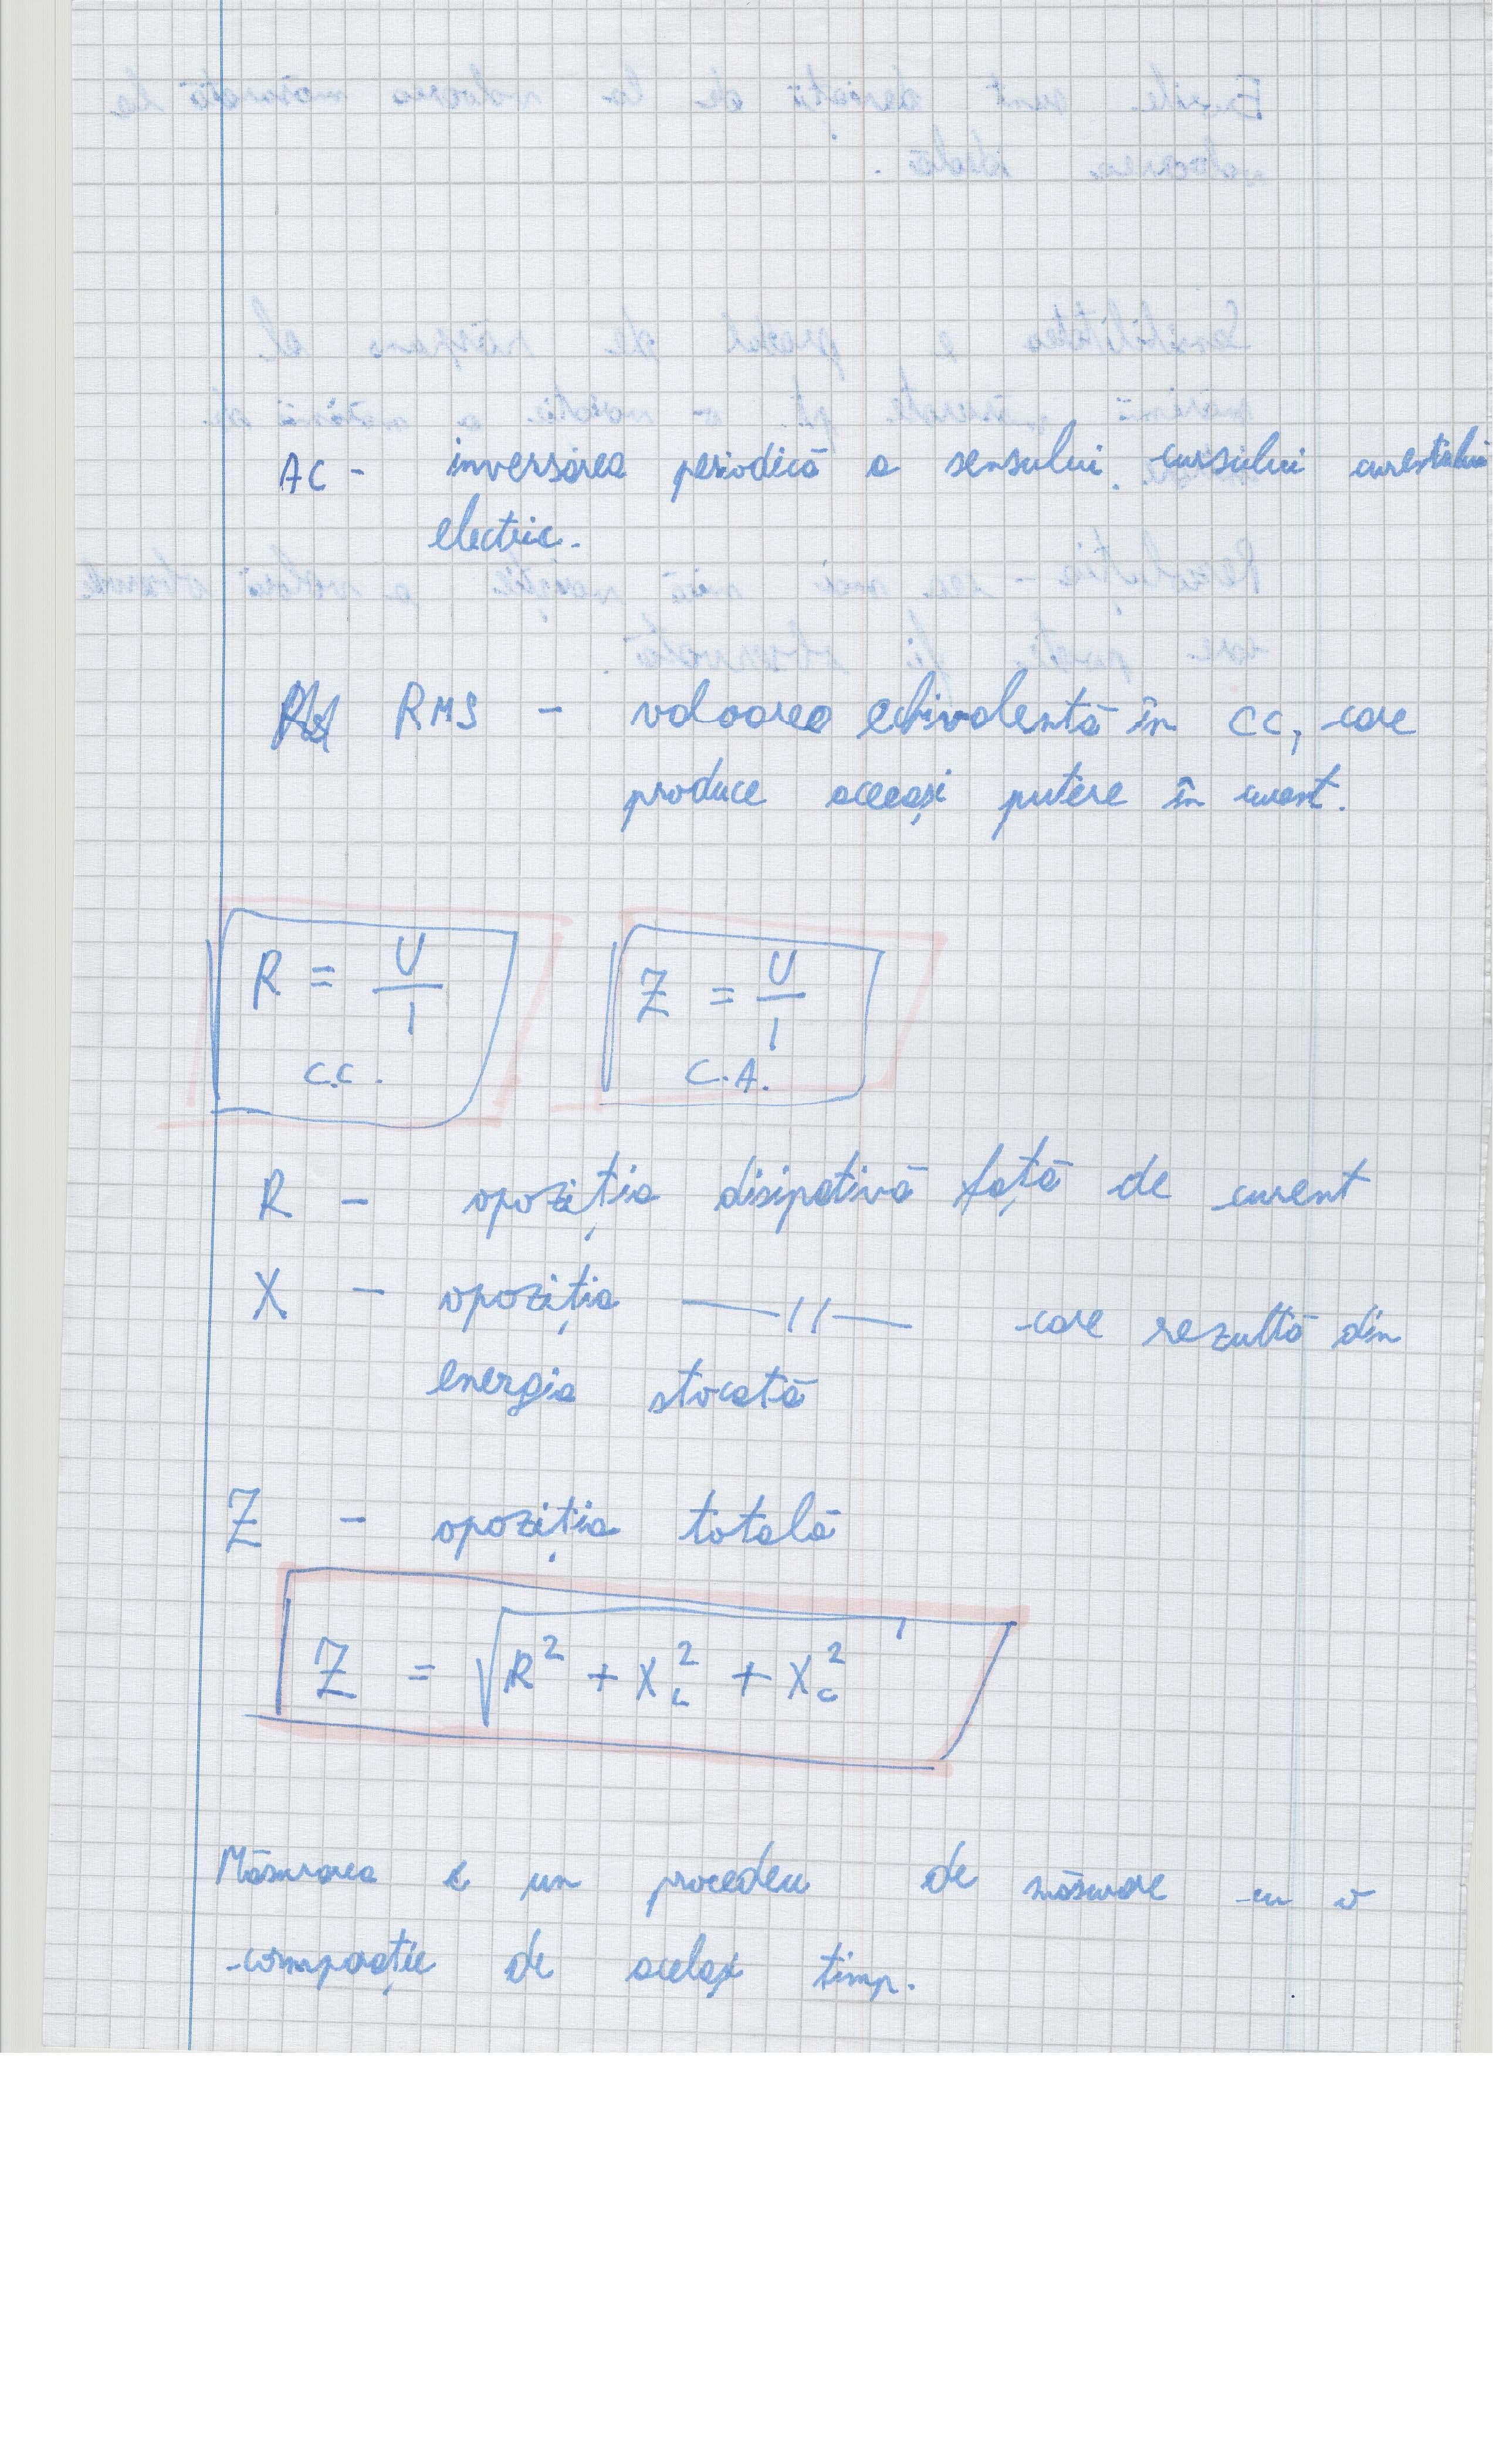 AC - inversarea periodică a sensului cursului curentului
electric.
RMS - valoarea echivalentă în CC, care
produce aceeași putere în curent.
R = U/I
C.C.
Z = U/I
C.A.
R - opoziția disipativă față de curent
X - opoziția —//— care rezultă din
energia stocată
Z - opoziția totală
Z = √R² + X_L² + X_C²
Măsurarea e un procedeu de măsurare cu o
comparație de același timp.